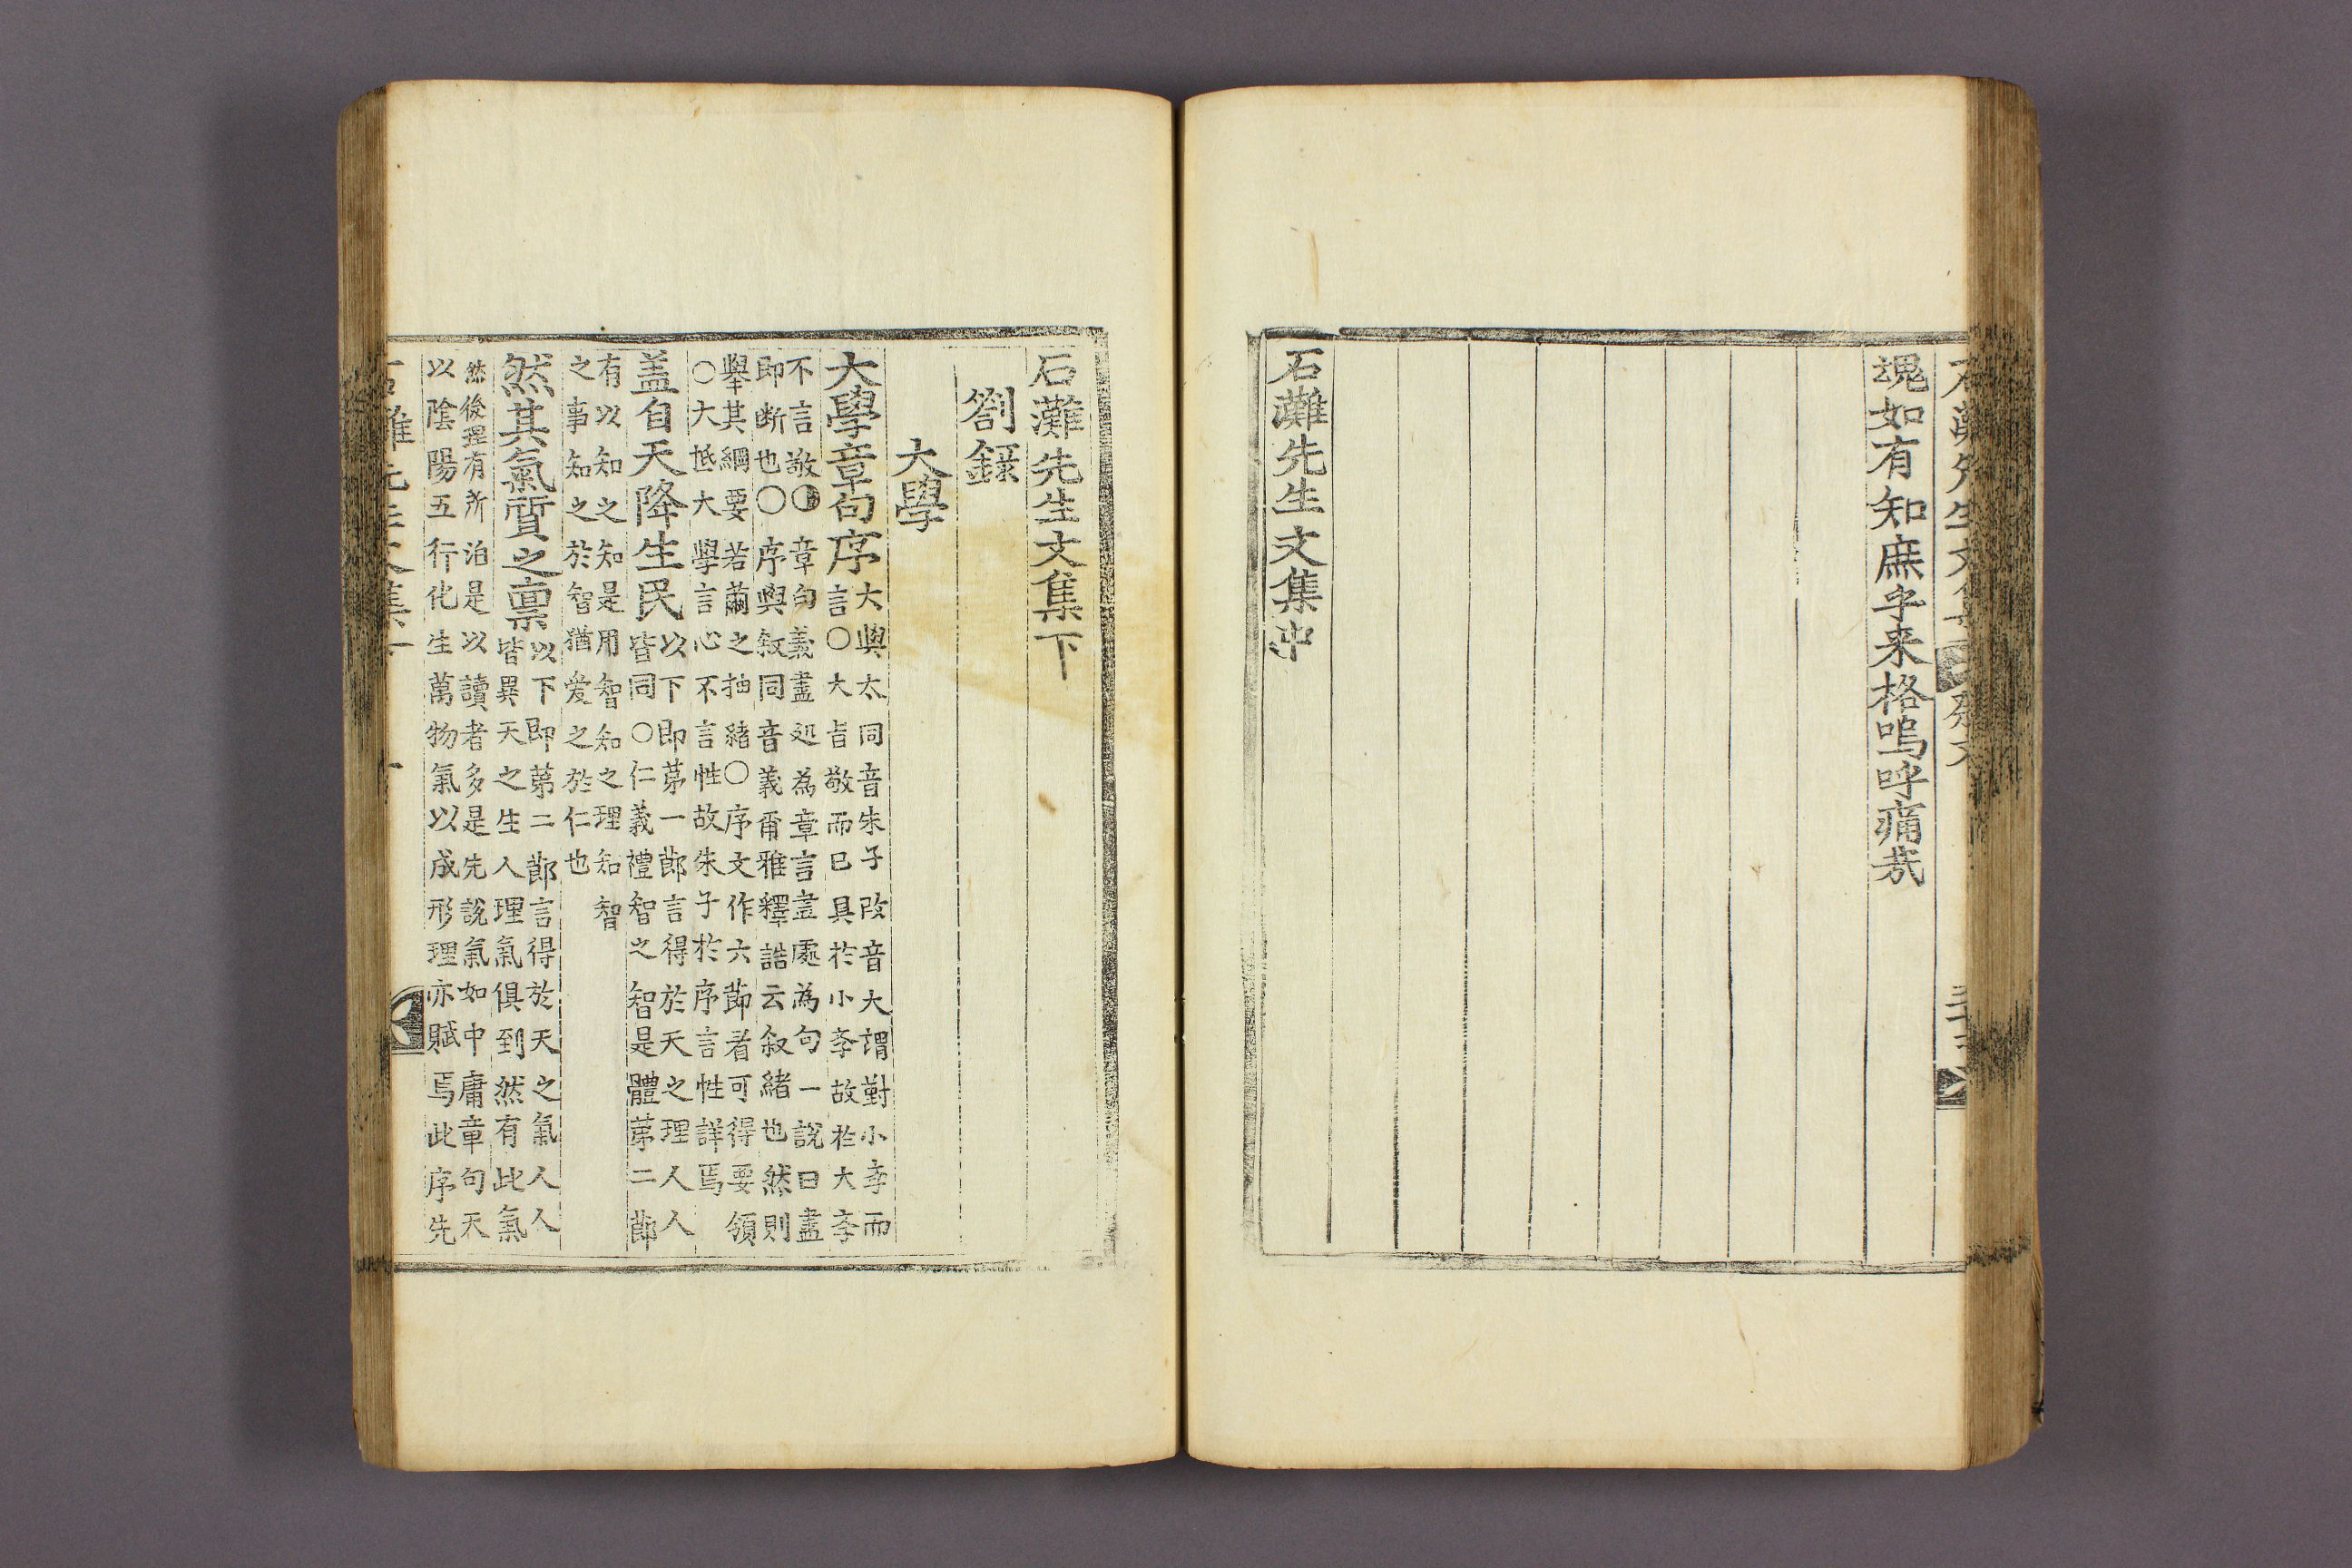 魂如有知庶乎来格嗚呼痛哉
石灘先生文集中
石灘先生文集下
劄錄
大學
大學章句序
大與太同音朱子改音大謂對小斈而
言〇大旨敬而已具於小斈故於大斈
不言敬〇章句義盡処為章言盡處為句一說曰盡
即断也〇序與叙同音義爾雅釋誥云叙緒也然則
舉其綱要若繭之抽緒〇序文作六節者可得要領
〇大抵大學言心不言性故朱子於序言性詳焉
盖自天降生民
以下即苐一節言得於天之理人人
皆同〇仁義禮智之智是體苐二節
有以知之知是用智知之理知智
之事知之於智猶爱之於仁也
然其氣質之禀
以下即苐二節言得於天之氣人人
皆異天之生人理氣俱到然有此氣
然後理有所泊是以讀者多是先說氣如中庸章句天
以陰陽五行化生萬物氣以成形理亦賦焉此序先